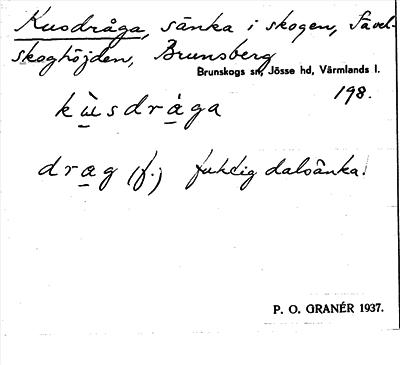 Kusdråga, sänka i skogen, Favel-
skoghöjden, Brunsberg
Brunskogs sn, Jösse hd, Värmlands l.
198.
kùsdrága
drag (f.) fuktig dalsänka!
P. O. GRANÉR 1937.